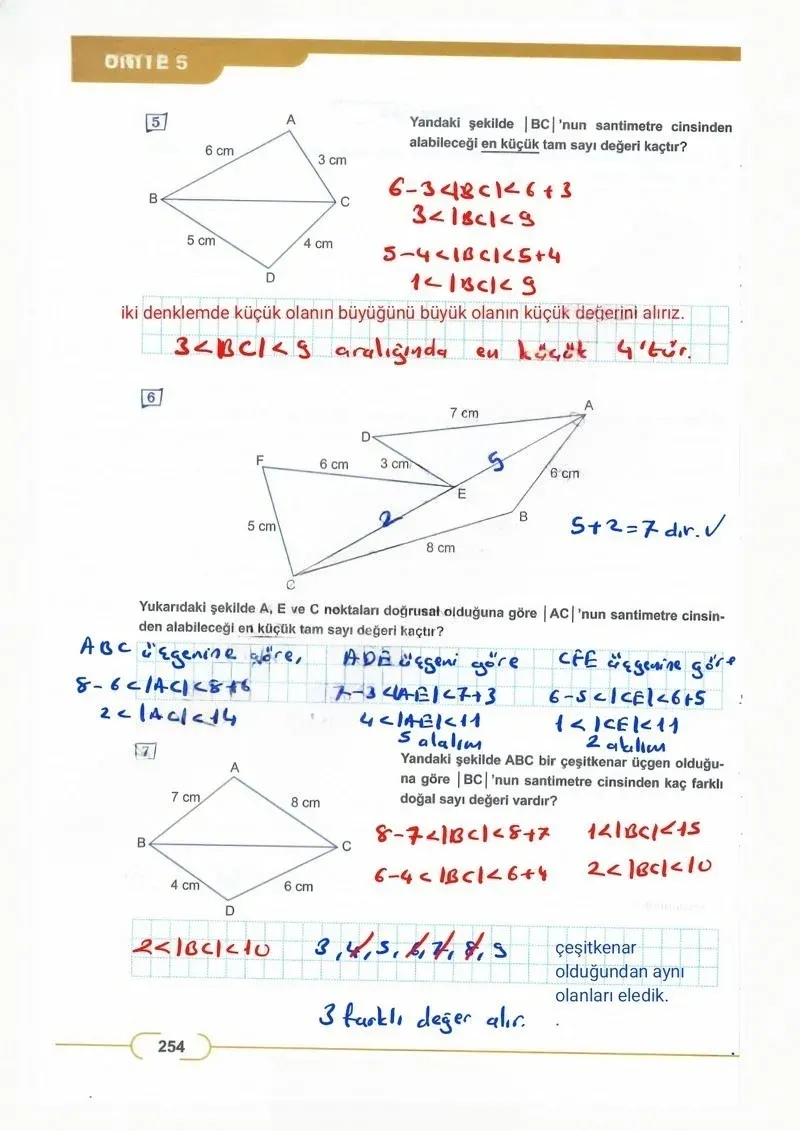 ÜNİTE 5
5
A
6 cm
3 cm
B
C
5 cm
4 cm
D
Yandaki şekilde |BC|'nun santimetre cinsinden
alabileceği en küçük tam sayı değeri kaçtır?
6-3<|BC|<6+3
3<|BC|<9
5-4<|BC|<5+4
1<|BC|<9
iki denklemde küçük olanın büyüğünü büyük olanın küçük değerini alırız.
3<|BC|<9 aralığında en küçük 4'tür.
6
7 cm
A
D
F
6 cm
3 cm
5
6 cm
E
5 cm
2
B
8 cm
C
5+2=7 dir. ✓
Yukarıdaki şekilde A, E ve C noktaları doğrusal olduğuna göre |AC|'nun santimetre cinsin-
den alabileceği en küçük tam sayı değeri kaçtır?
ABC üçgenine göre,
8-6<|AC|<8+6
2<|AC|<14
ADE üçgeni göre
7-3<|AE|<7+3
4<|AE|<11
5 alalım
CFE üçgenine göre
6-5<|CE|<6+5
1<|CE|<11
2 alalım
7
A
7 cm
8 cm
B
C
4 cm
6 cm
D
Yandaki şekilde ABC bir çeşitkenar üçgen olduğu-
na göre |BC|'nun santimetre cinsinden kaç farklı
doğal sayı değeri vardır?
8-7<|BC|<8+7 1<|BC|<15
6-4<|BC|<6+4 2<|BC|<10
2<|BC|<10 3,4,5,6,7,8,9
çeşitkenar
olduğundan aynı
olanları eledik.
3 farklı değer alır.
254